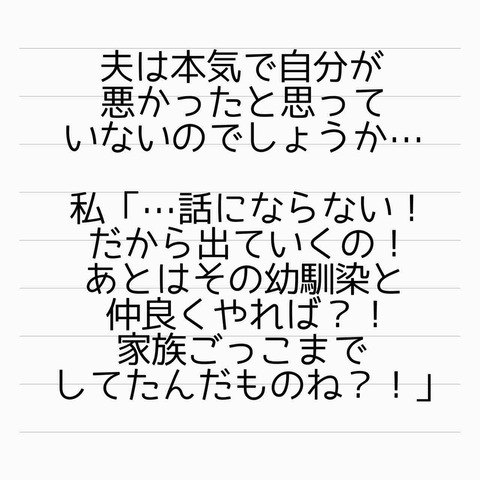 夫は本気で自分が
悪かったと思って
いないのでしょうか…
私「…話にならない！
だから出ていくの！
あとはその幼馴染と
仲良くやれば？！
家族ごっこまで
してたんだものね？！」